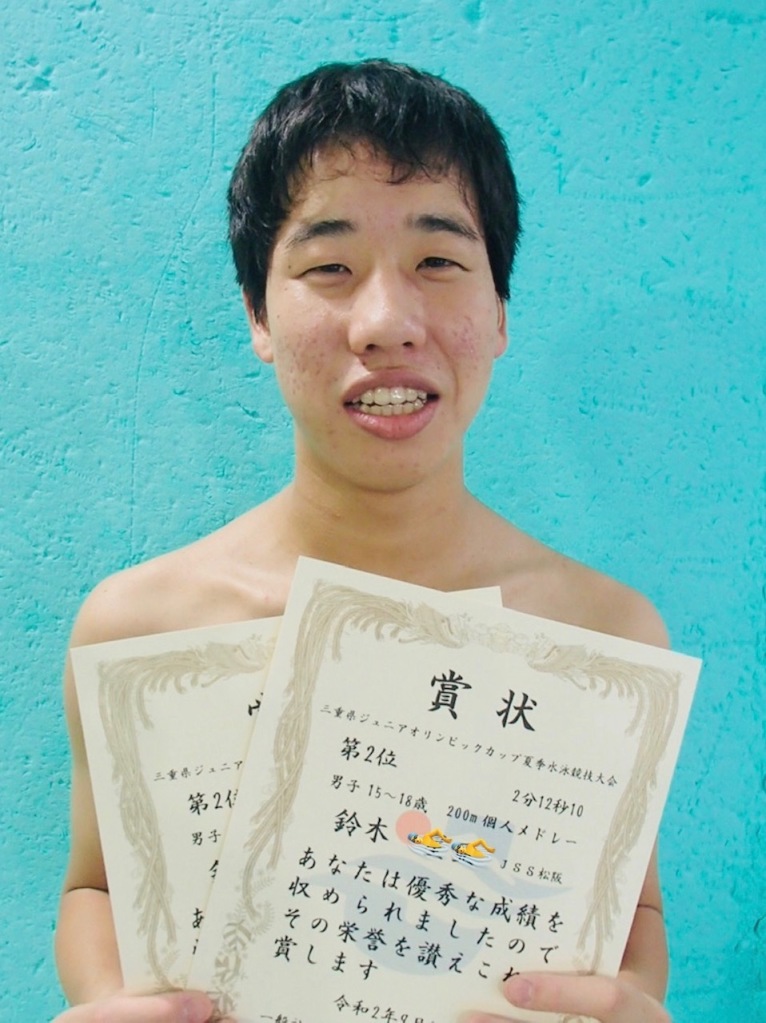 賞状
三重県ジュニアオリンピックカップ夏季水泳競技大会
第2位
2分12秒10
男子 15～18歳 200m 個人メドレー
鈴木
JSS松阪
あなたは優秀な成績を
収められましたので
その栄誉を讃えこれ
賞します
令和2年9月
三重県ジュニア
第2位
男子
あ